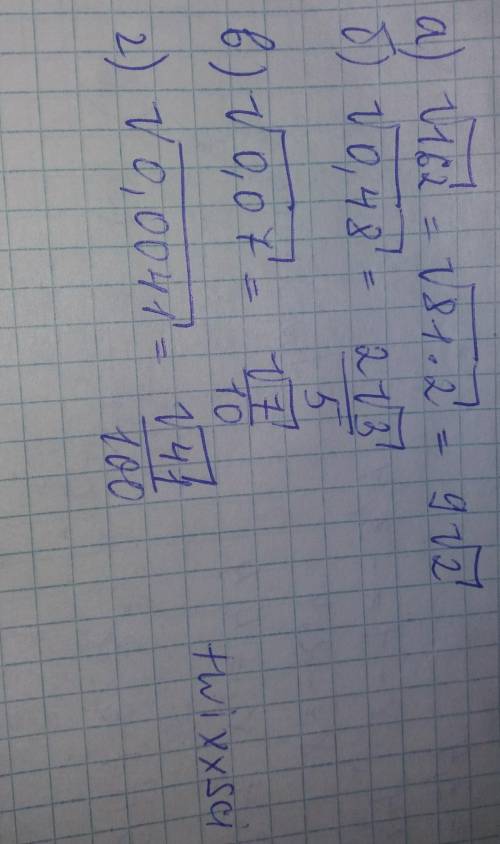 а) √162 = √81·2 = 9√2
б) √0,48 = 2√3/5
в) √0,07 = √7/10
г) √0,0041 = √41/100
twixxsci